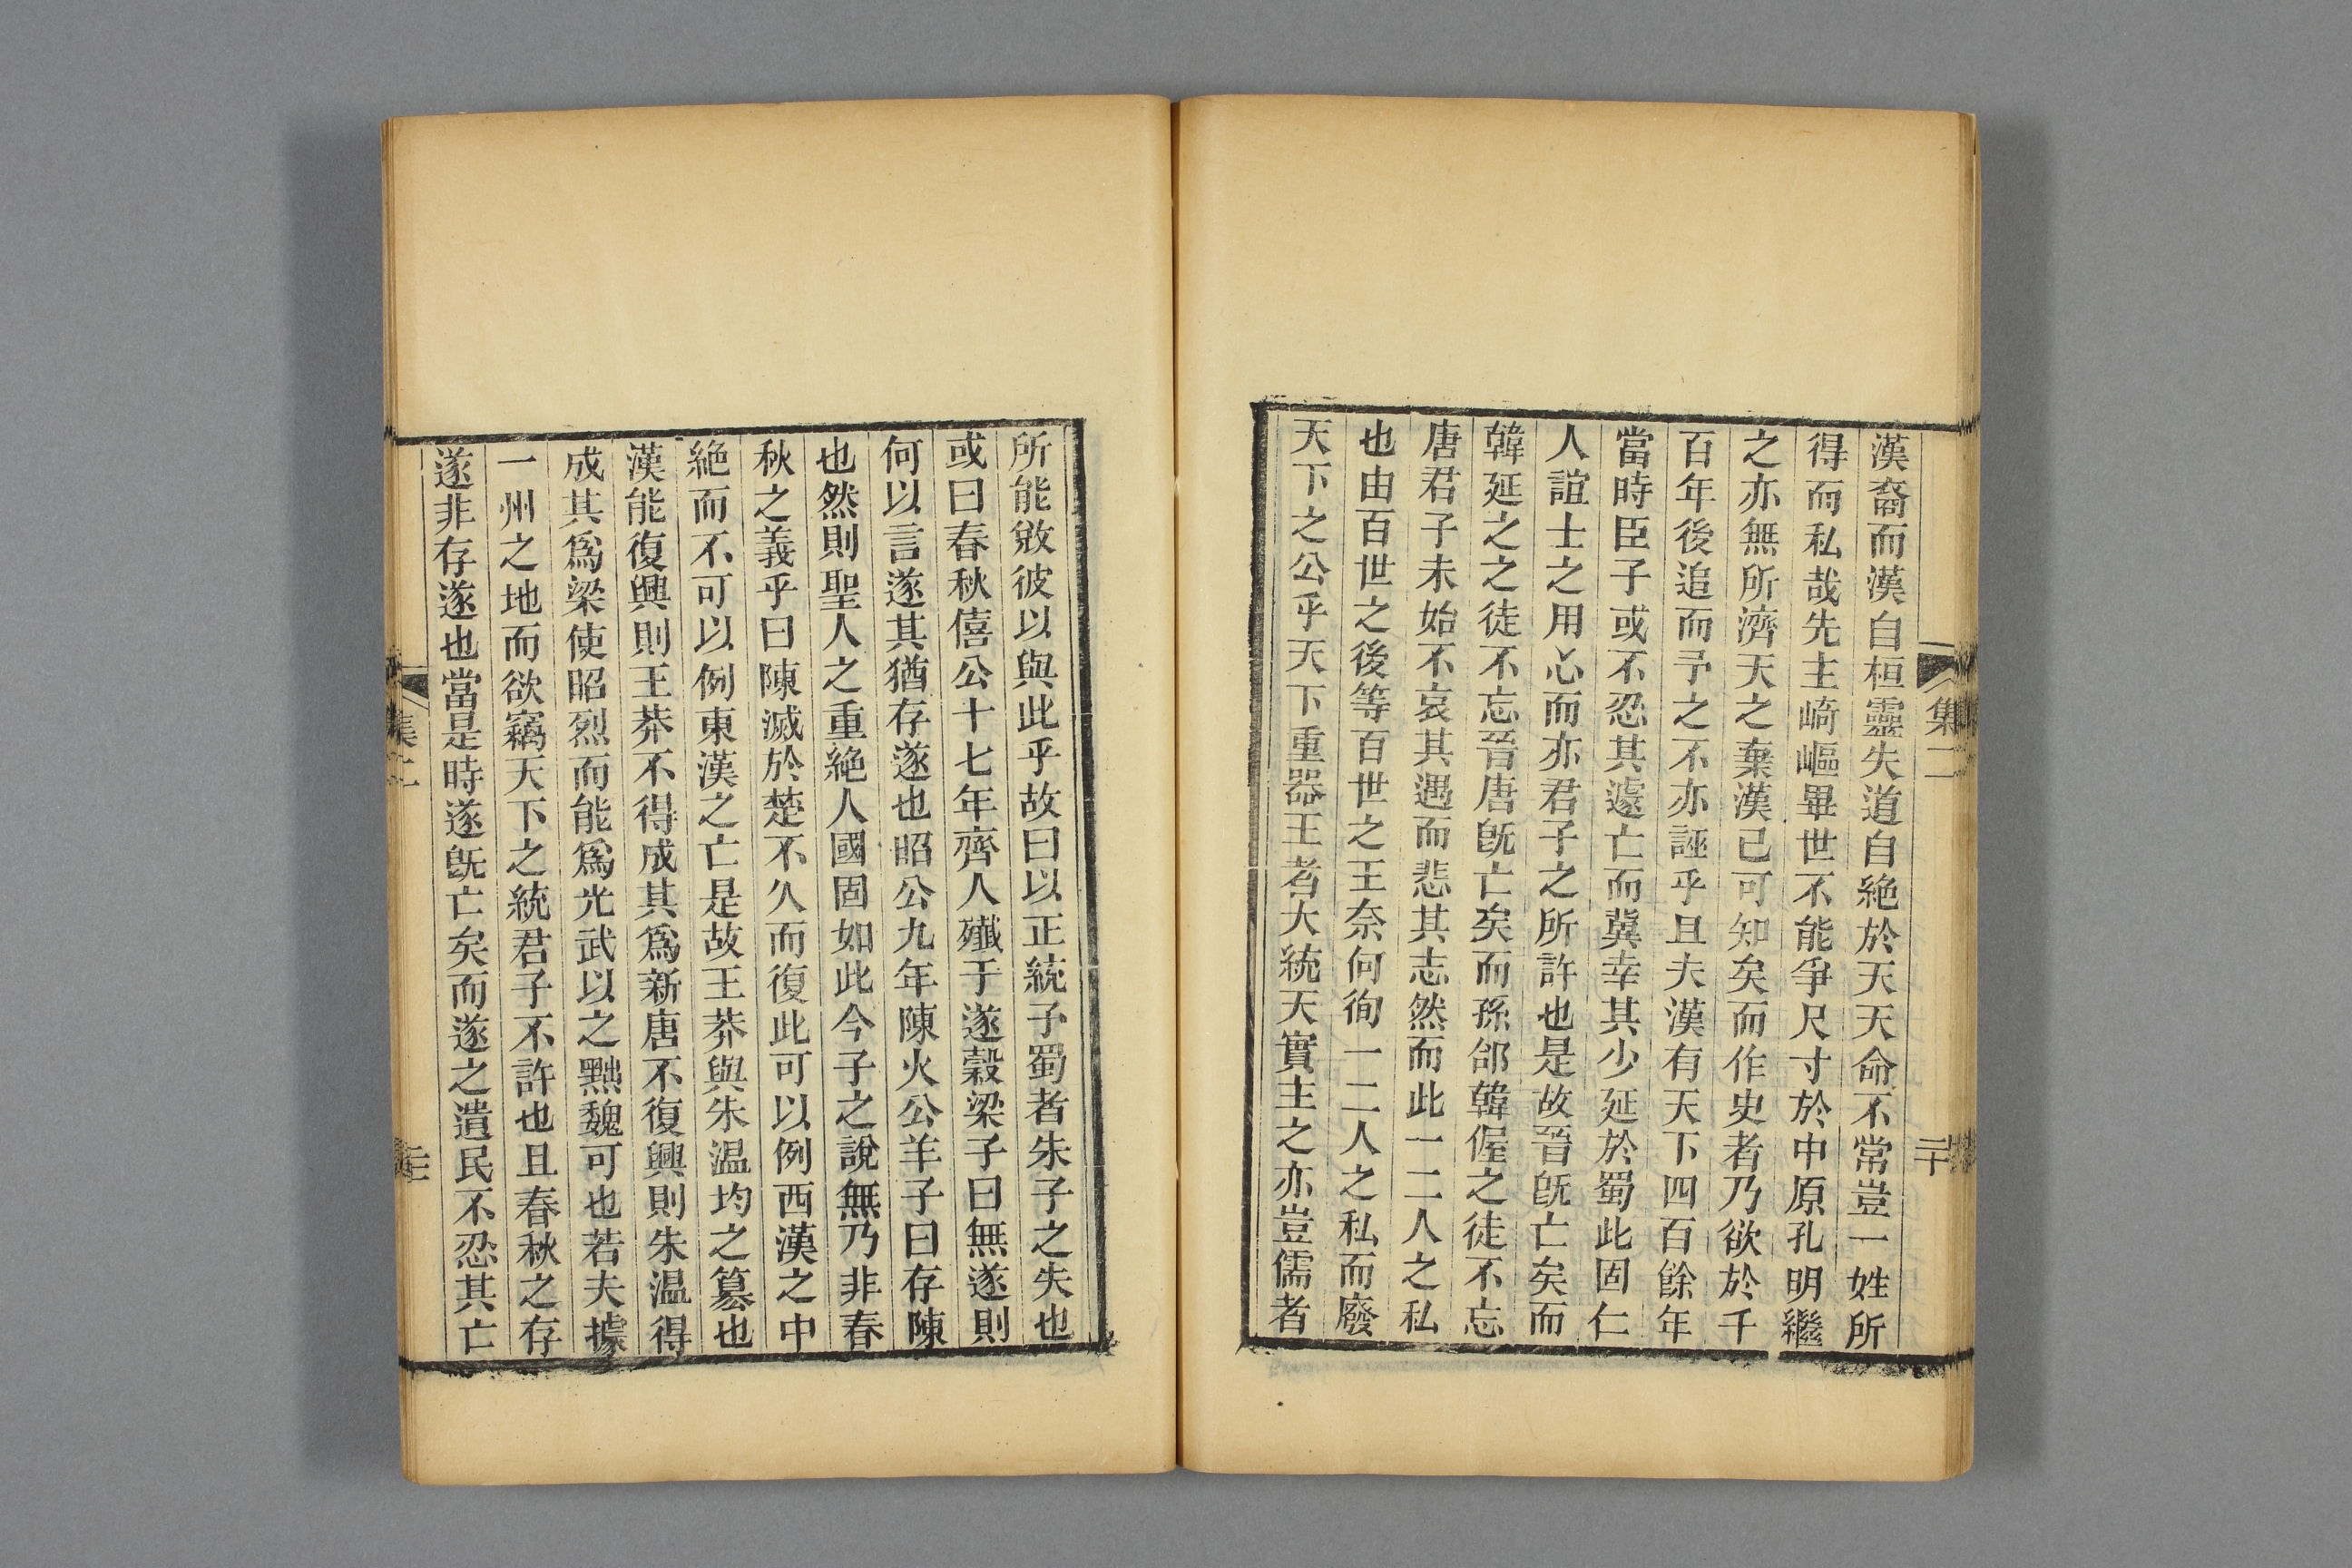 集二
二十
漢裔而漢自桓靈失道自絕於天天命不常豈一姓所
得而私哉先主崎嶇畢世不能爭尺寸於中原孔明繼
之亦無所濟天之棄漢已可知矣而作史者乃欲於千
百年後追而予之不亦誣乎且夫漢有天下四百餘年
當時臣子或不忍其遽亡而冀幸其少延於蜀此固仁
人誼士之用心而亦君子之所許也是故晉旣亡矣而
韓延之之徒不忘晉唐旣亡矣而孫郃韓偓之徒不忘
唐君子未始不哀其遇而悲其志然而此一二人之私
也由百世之後等百世之王奈何徇一二人之私而廢
天下之公乎天下重器王者大統天實主之亦豈儒者
所能敚彼以與此乎故曰以正統予蜀者朱子之失也
或曰春秋僖公十七年齊人殲于遂穀梁子曰無遂則
何以言遂其猶存遂也昭公九年陳火公羊子曰存陳
也然則聖人之重絕人國固如此今子之說無乃非春
秋之義乎曰陳滅於楚不久而復此可以例西漢之中
絕而不可以例東漢之亡是故王莽與朱温均之簒也
漢能復興則王莽不得成其爲新唐不復興則朱温得
成其爲梁使昭烈而能爲光武以之黜魏可也若夫據
一州之地而欲竊天下之統君子不許也且春秋之存
遂非存遂也當是時遂旣亡矣而遂之遺民不忍其亡
集二